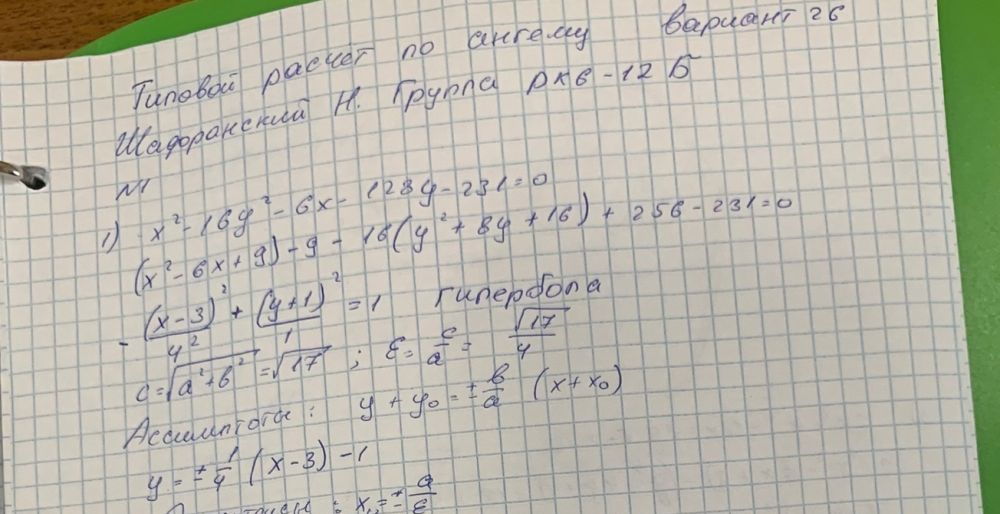 Типовой расчет по ангему вариант 26
Шафоранский Н. Группа РК6-12Б
№1
1) x² - 16y² - 6x - 128y - 231 = 0
(x² - 6x + 9) - 9 - 16(y² + 8y + 16) + 256 - 231 = 0
- (x-3)²/4² + (y+1)²/1 = 1 гипербола
c = √(a²+b²) = √17 ; ε = c/a = √17/4
Ассимптоты : y + y₀ = ± b/a (x + x₀)
y = ± 1/4 (x - 3) - 1
: x₁,₂ = ± a/ε